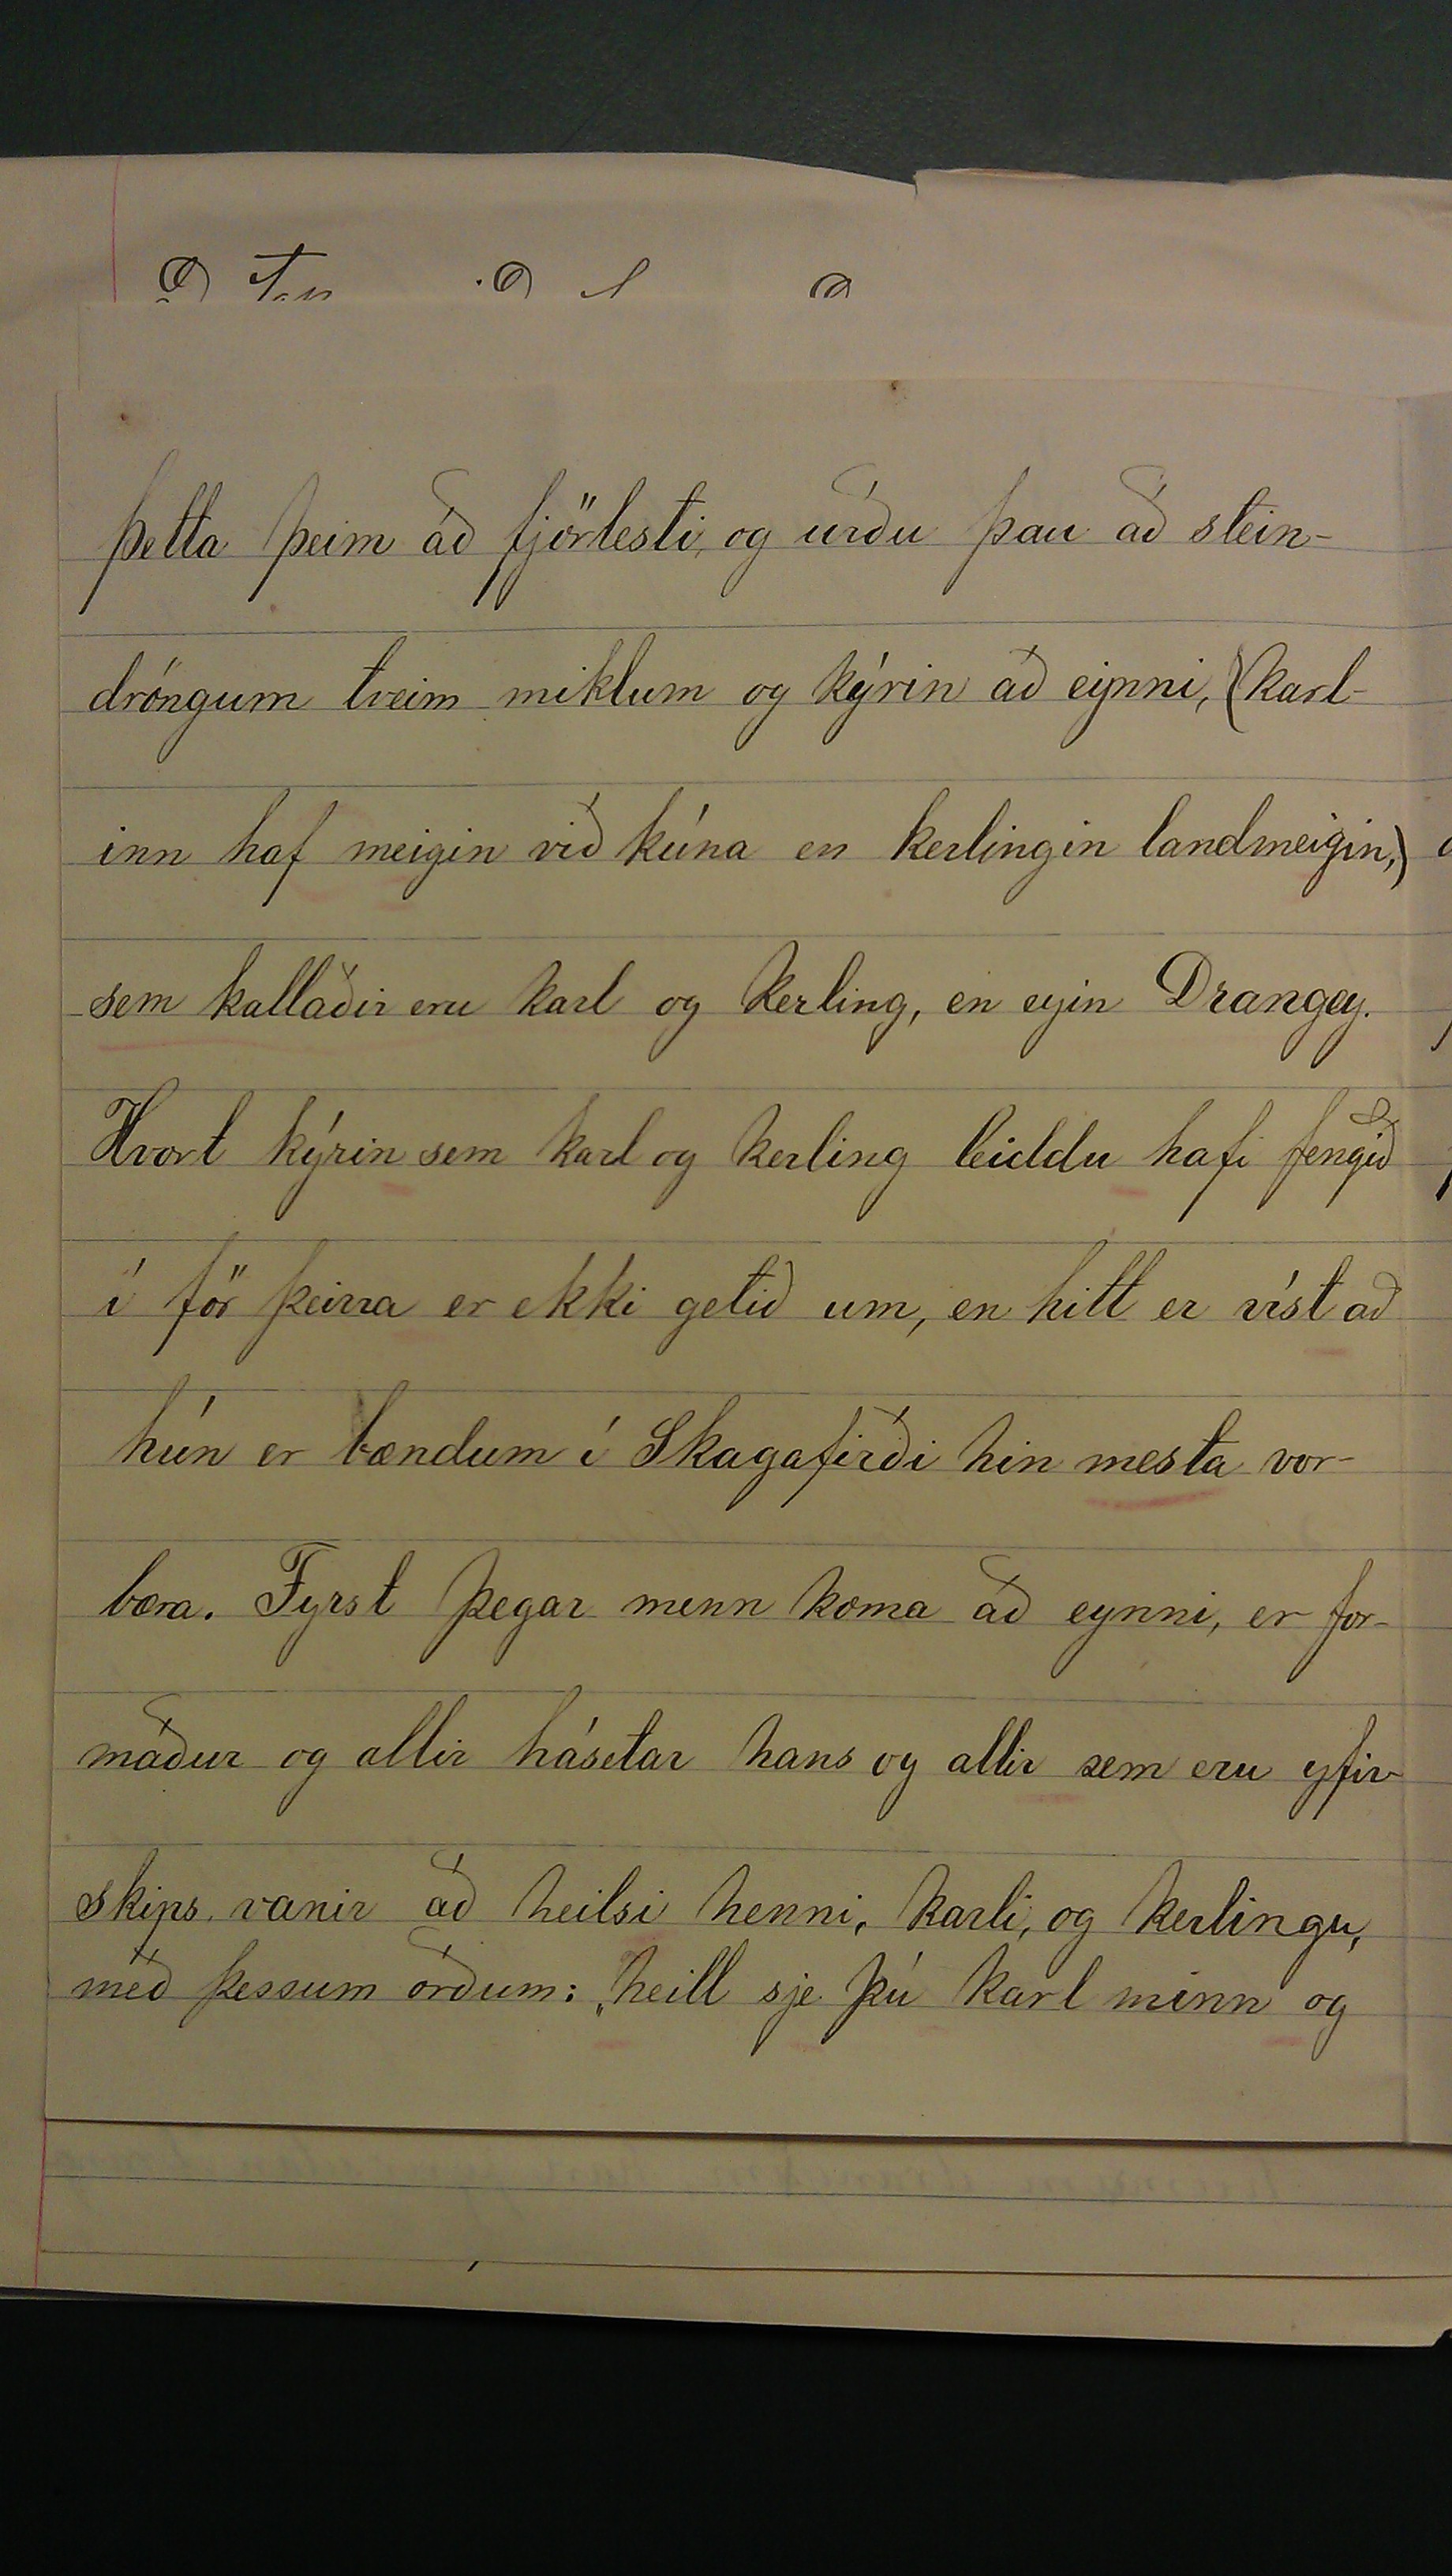 þetta þeim að fjörlesti, og urðu þau að stein-
dröngum tveim miklum og kýrin að eynni, (karl-
inn haf meigin við kúna en kerlingin landmeigin,)
sem kallaðir eru karl og kerling, en eyin Drangey.
Hvort kýrin sem karl og kerling leiddu hafi fengið
í för þeirra er ekki getið um, en hitt er víst að
hún er bændum í Skagafirði hin mesta vor-
bæra. Fyrst þegar menn koma að eynni, er for-
maður og allir hásetar hans og allir sem eru yfir
skips vanir að heilsi henni, karli, og kerlingu,
með þessum orðum: „heill sje þú karl minn og